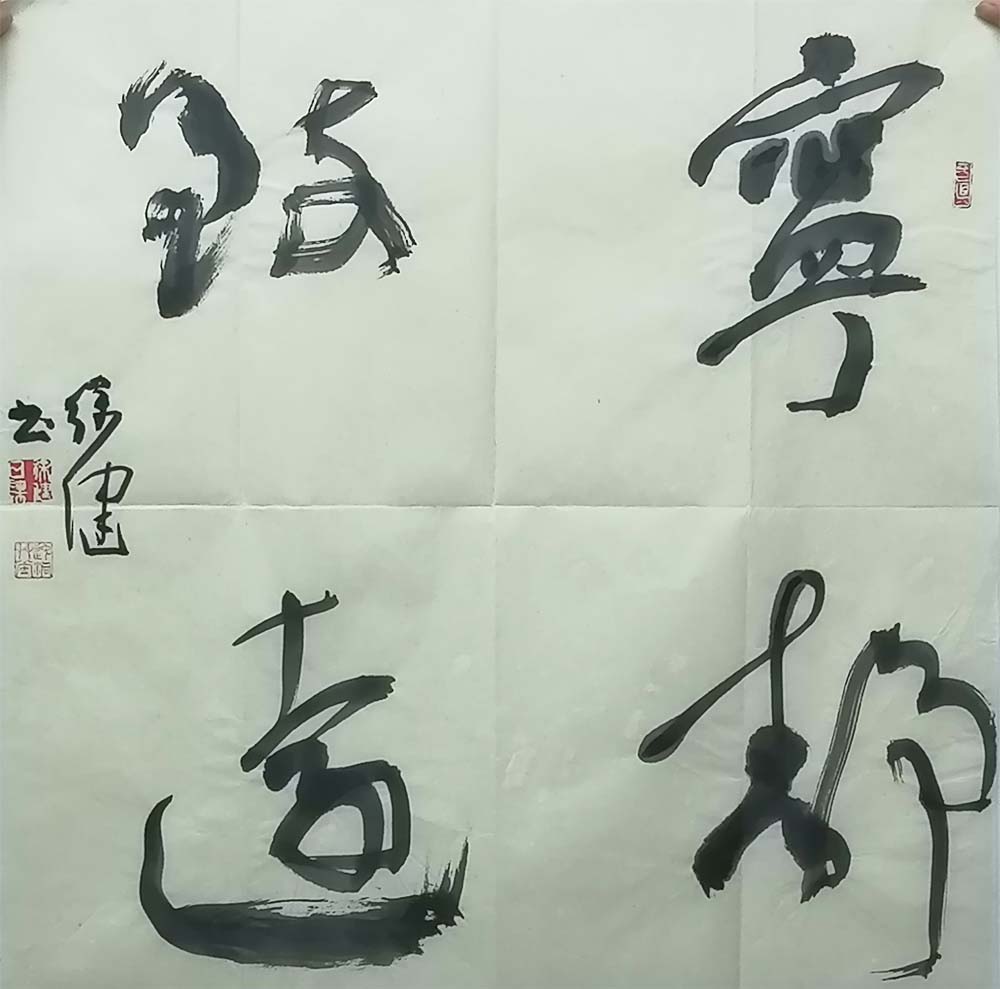 寧静
致遠
徐健
书